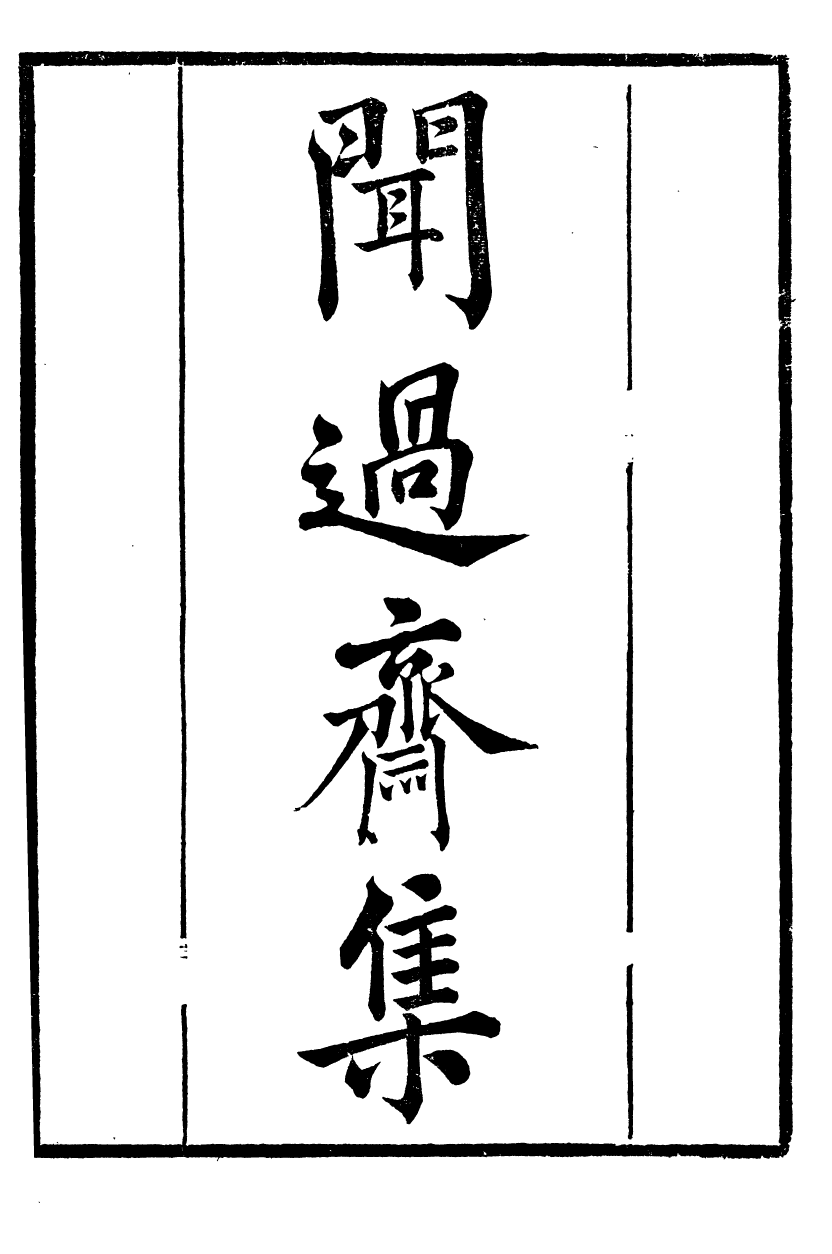 聞過齋集